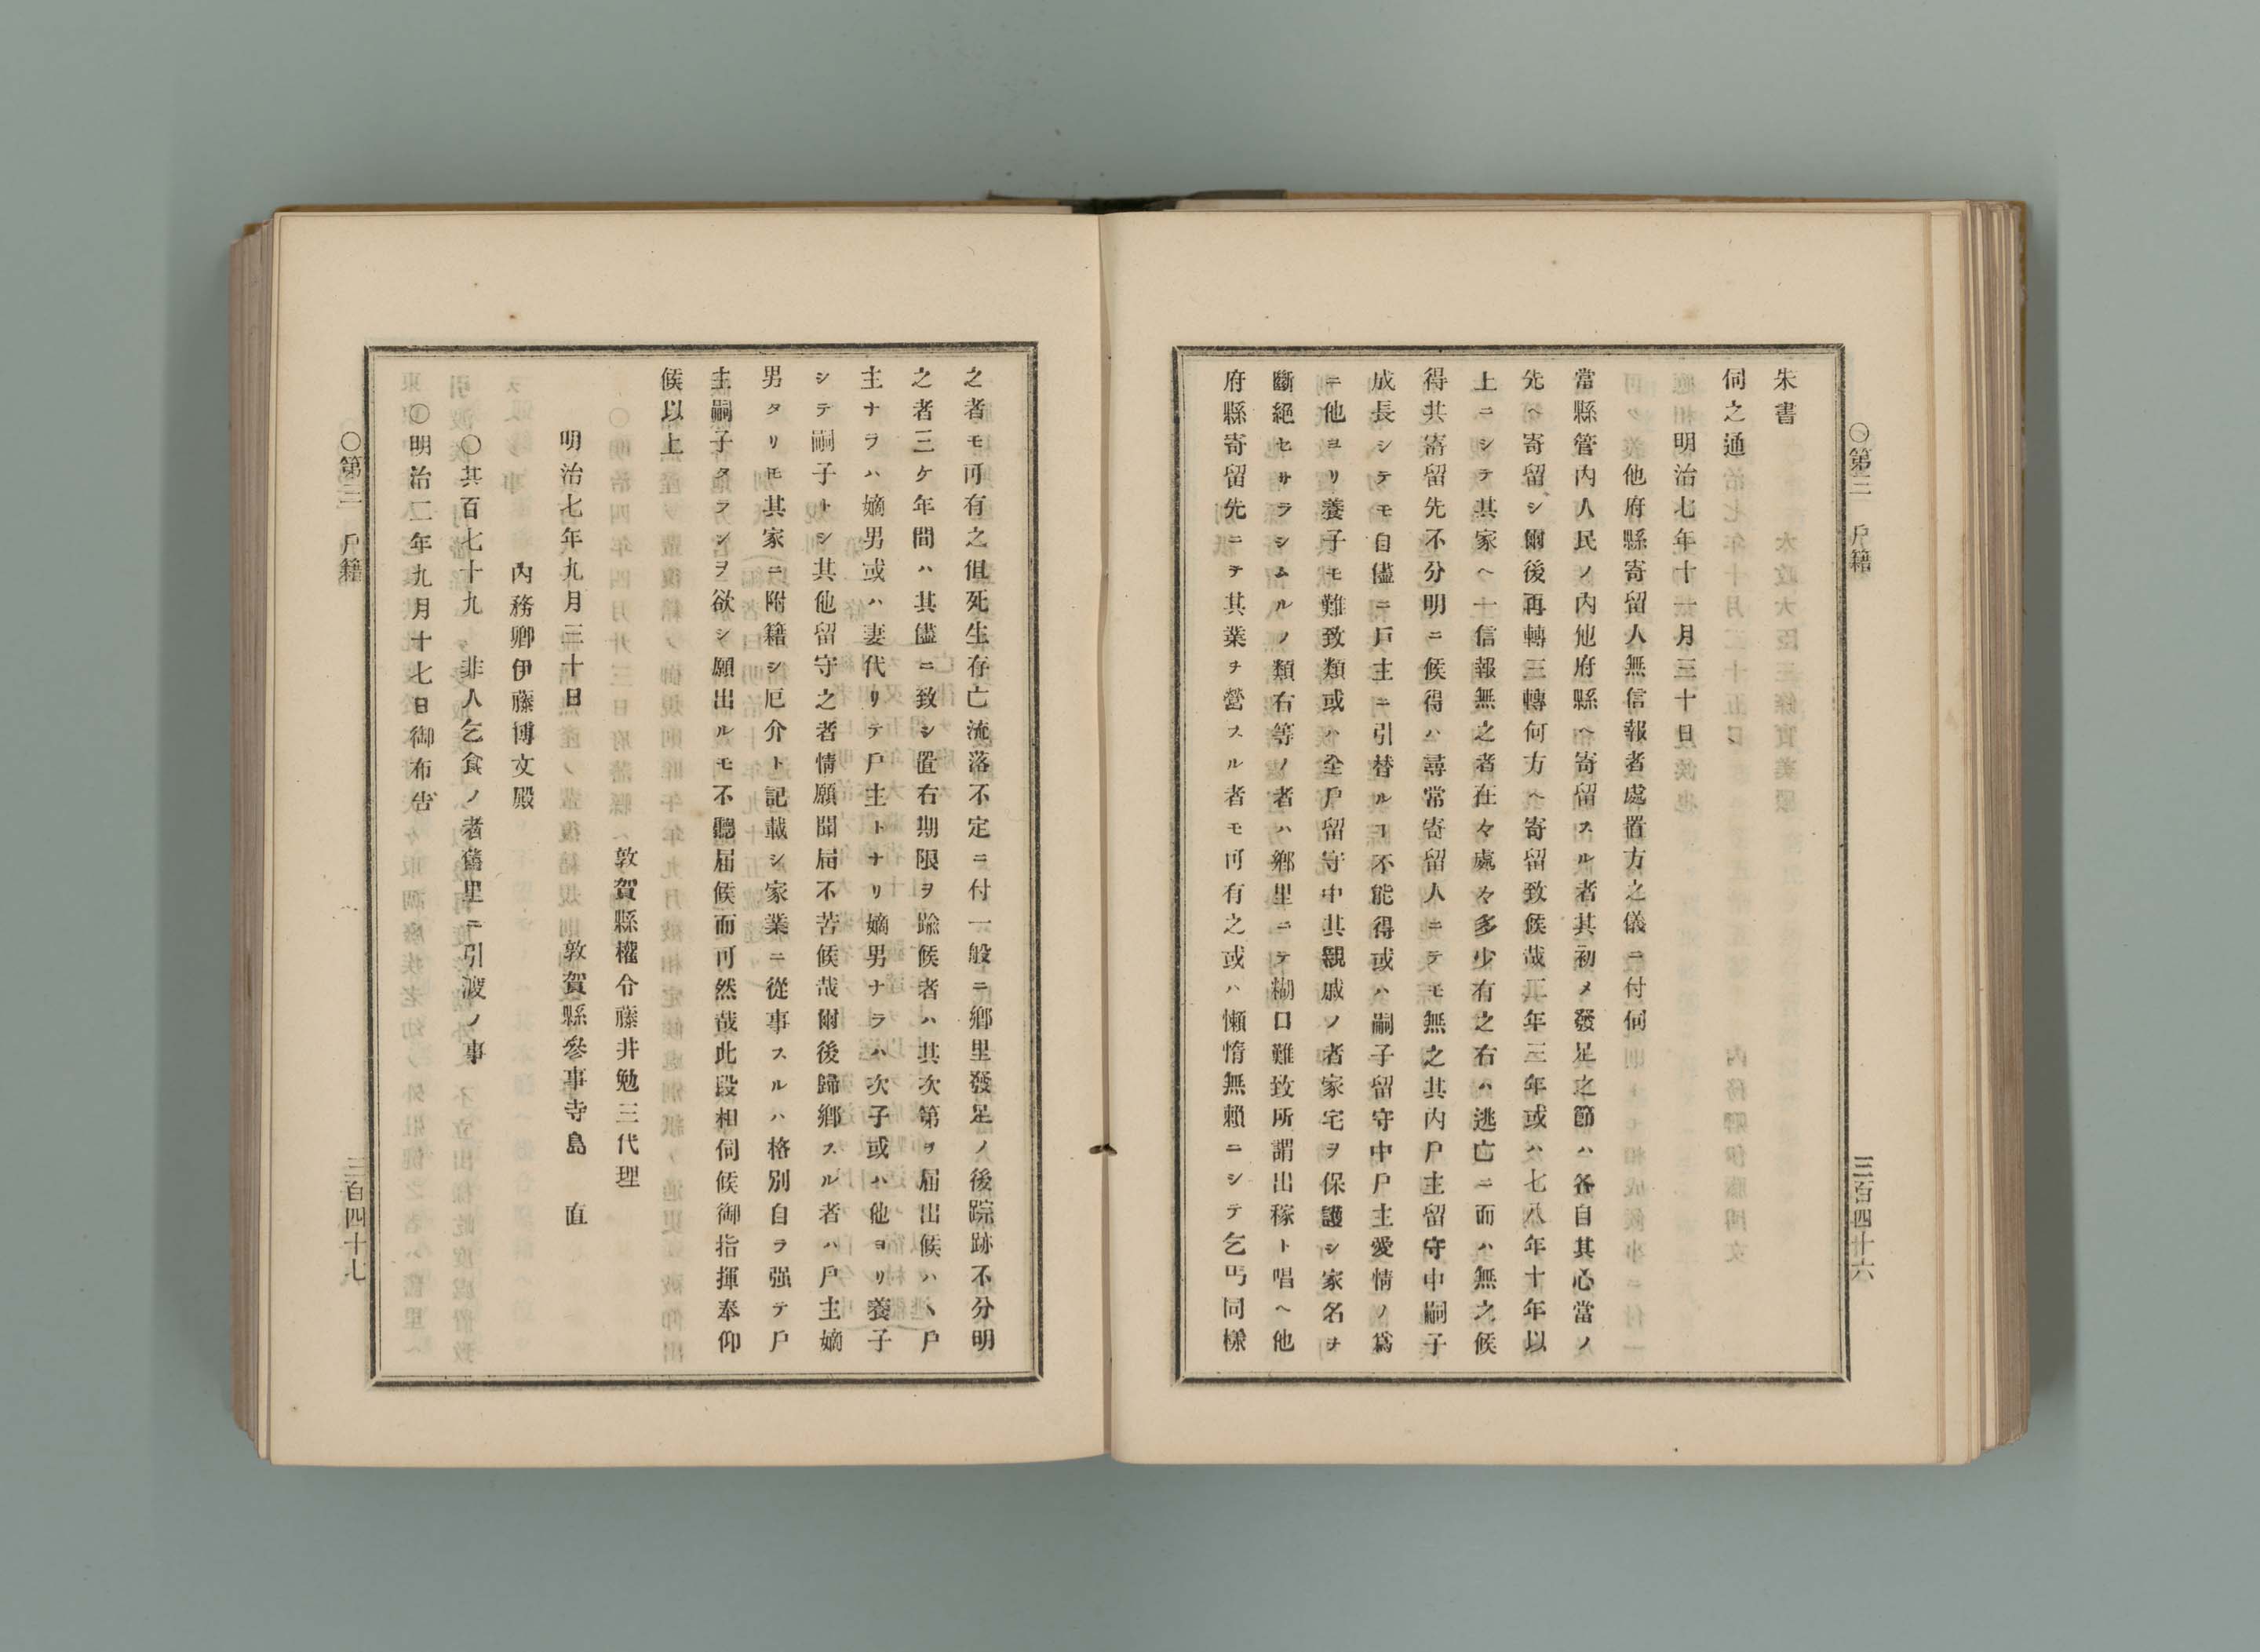 ○第三　戶籍　三百四十六
朱書
伺之通
明治七年十一月三十日
他府縣寄留人無信報者處置方之儀ニ付伺
當縣管內人民ノ內他府縣ヘ寄留スル者其初メ發足之節ハ各自其心當ノ
先ヘ寄留シ爾後再轉三轉何方ヘ寄留致候哉二年三年或ハ七八年十年以
上ニシテ其家ヘ一信報無之者在々處々多少有之右ハ逃亡ニ而ハ無之候
得共寄留先不分明ニ候得ハ尋常寄留人ニテモ無之其內戶主留守中嗣子
成長シテモ自儘ニ戶主ニ引替ルヿ不能得或ハ嗣子留守中戶主愛情ノ爲
ニ他ヨリ養子モ難致類或ハ全戶留守中其親戚ノ者家宅ヲ保護シ家名ヲ
斷絕セサラシムルノ類右等ノ者ハ鄕里ニテ糊口難致所謂出稼ト唱ヘ他
府縣寄留先ニテ其業ヲ營スル者モ可有之或ハ懶惰無賴ニシテ乞丐同樣
之者モ可有之但死生存亡流落不定ニ付一般ニ鄕里發足ノ後踪跡不分明
之者三ケ年間ハ其儘ニ致シ置右期限ヲ踰候者ハ其次第ヲ届出候ハヽ戶
主ナラハ嫡男或ハ妻代リテ戶主トナリ嫡男ナラハ次子或ハ他ヨリ養子
シテ嗣子トシ其他留守之者情願聞届不苦候哉爾後歸鄕スル者ハ戶主嫡
男タリモ其家ニ附籍シ厄介ト記載シ家業ニ從事スルハ格別自ラ强テ戶
主嗣子タランヲ欲シ願出ルモ不聽届候而可然哉此段相伺候御指揮奉仰
候以上
敦賀縣權令藤井勉三代理
明治七年九月三十日　敦賀縣參事寺島　直
內務卿伊藤博文殿
○其百七十九　非人乞食ノ者舊里ニ引渡ノ事
○明治二年九月十七日御布告
○第三　戶籍　三百四十七